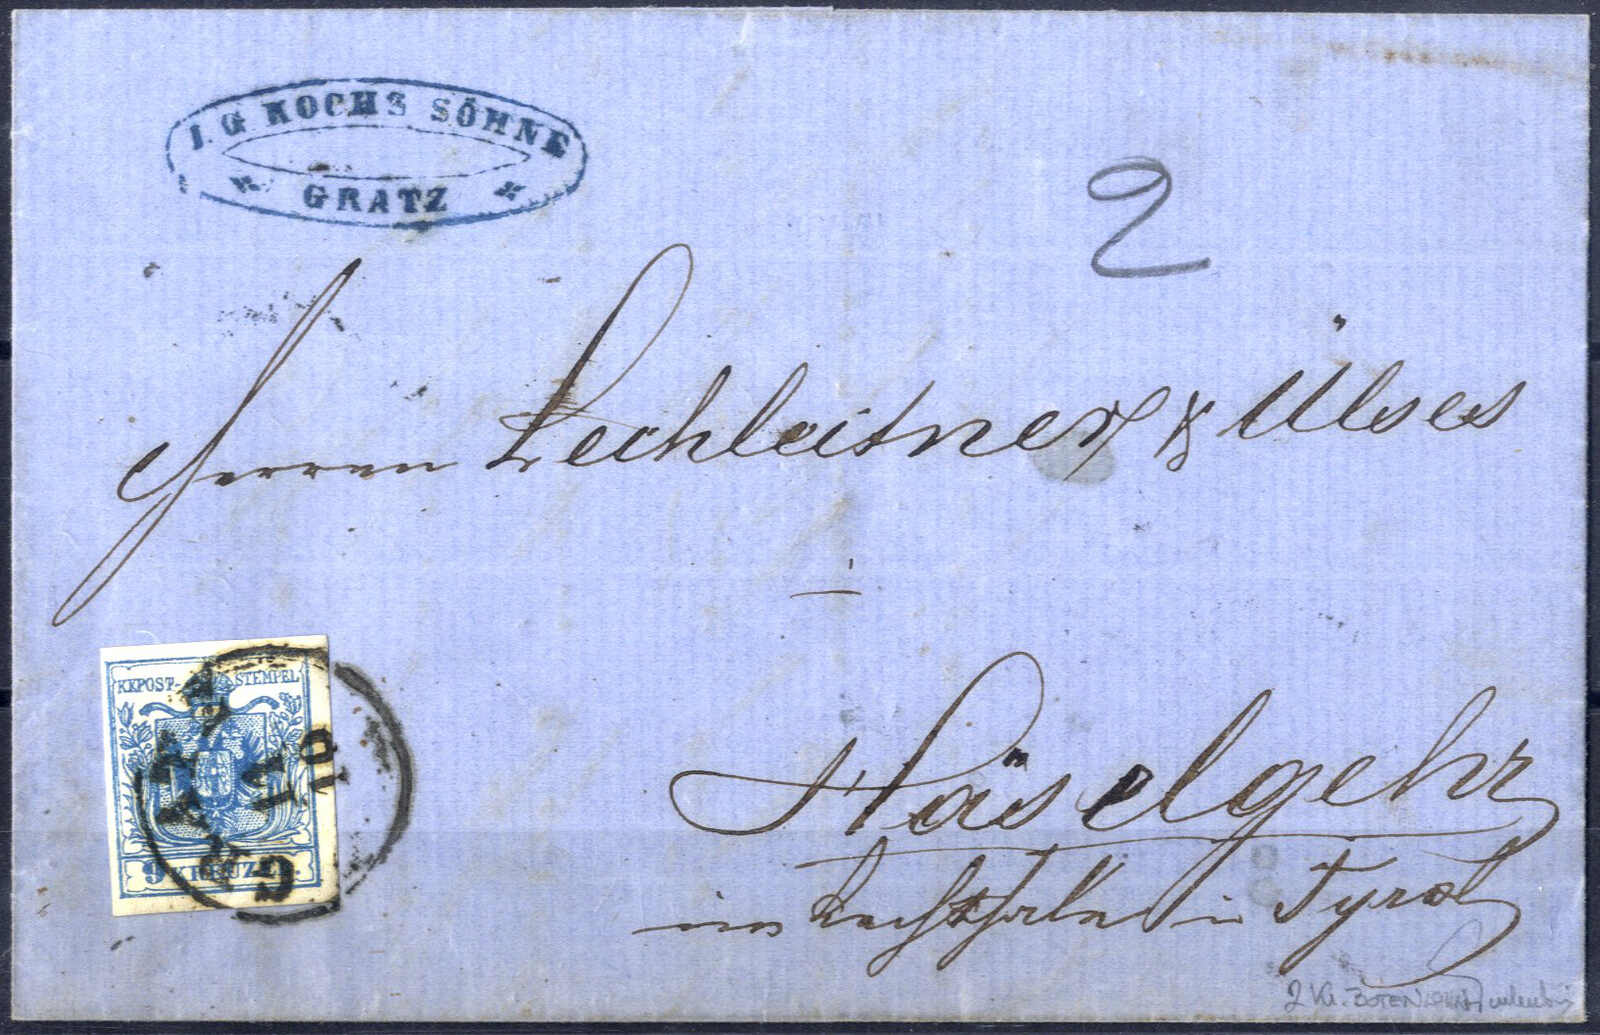 I. G KOCHS SÖHNE
GRATZ
2
Herren Lechleitner & Ülses
Häselgehr
im Lechthale in Tyrol
KKPOST-STEMPEL
9 KREUZER.
GRATZ
17
10
2 Kr. BOTENLOHN